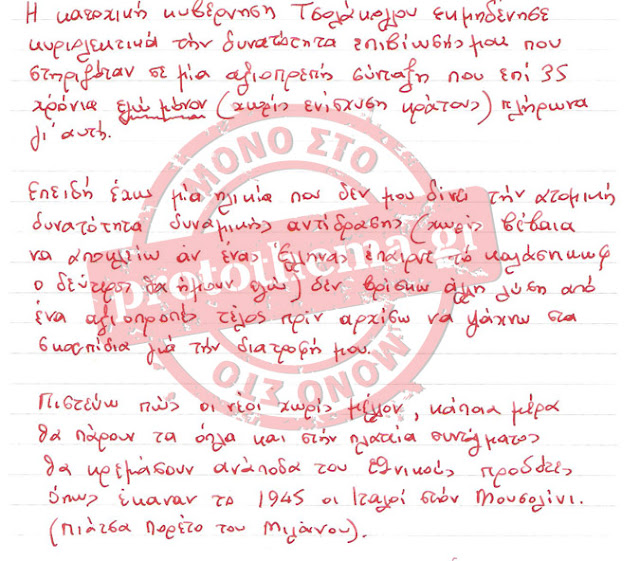 Η κατοχική κυβέρνηση Τσολάκογλου εκμηδένησε
κυριολεκτικά την δυνατότητα επιβίωσής μου που
στηριζόταν σε μία αξιοπρεπή σύνταξη που επί 35
χρόνια εγώ μόνον (χωρίς ενίσχυση κράτους) πλήρωνα
γι' αυτή.
ΜΟΝΟ ΣΤΟ
Επειδή έχω μία ηλικία που δεν μου δίνει την ατομική
δυνατότητα δυναμικής αντίδρασης (χωρίς βέβαια
να αποκλείω αν ένας Έλληνας έπαιρνε το καλάσνικωφ
protothema.gr
ο δεύτερος θα ήμουν εγώ) δεν βρίσκω άλλη λύση από
ένα αξιοπρεπές τέλος πριν αρχίσω να ψάχνω στα
σκουπίδια για την διατροφή μου.
ΜΟΝΟ ΣΤΟ
Πιστεύω πως οι νέοι χωρίς μέλλον, κάποια μέρα
θα πάρουν τα όπλα και στην πλατεία συντάγματος
θα κρεμάσουν ανάποδα του εθνικούς προδότες
όπως έκαναν το 1945 οι Ιταλοί στον Μουσολίνι.
(Πιάτσα Λορέτο του Μιλάνου).